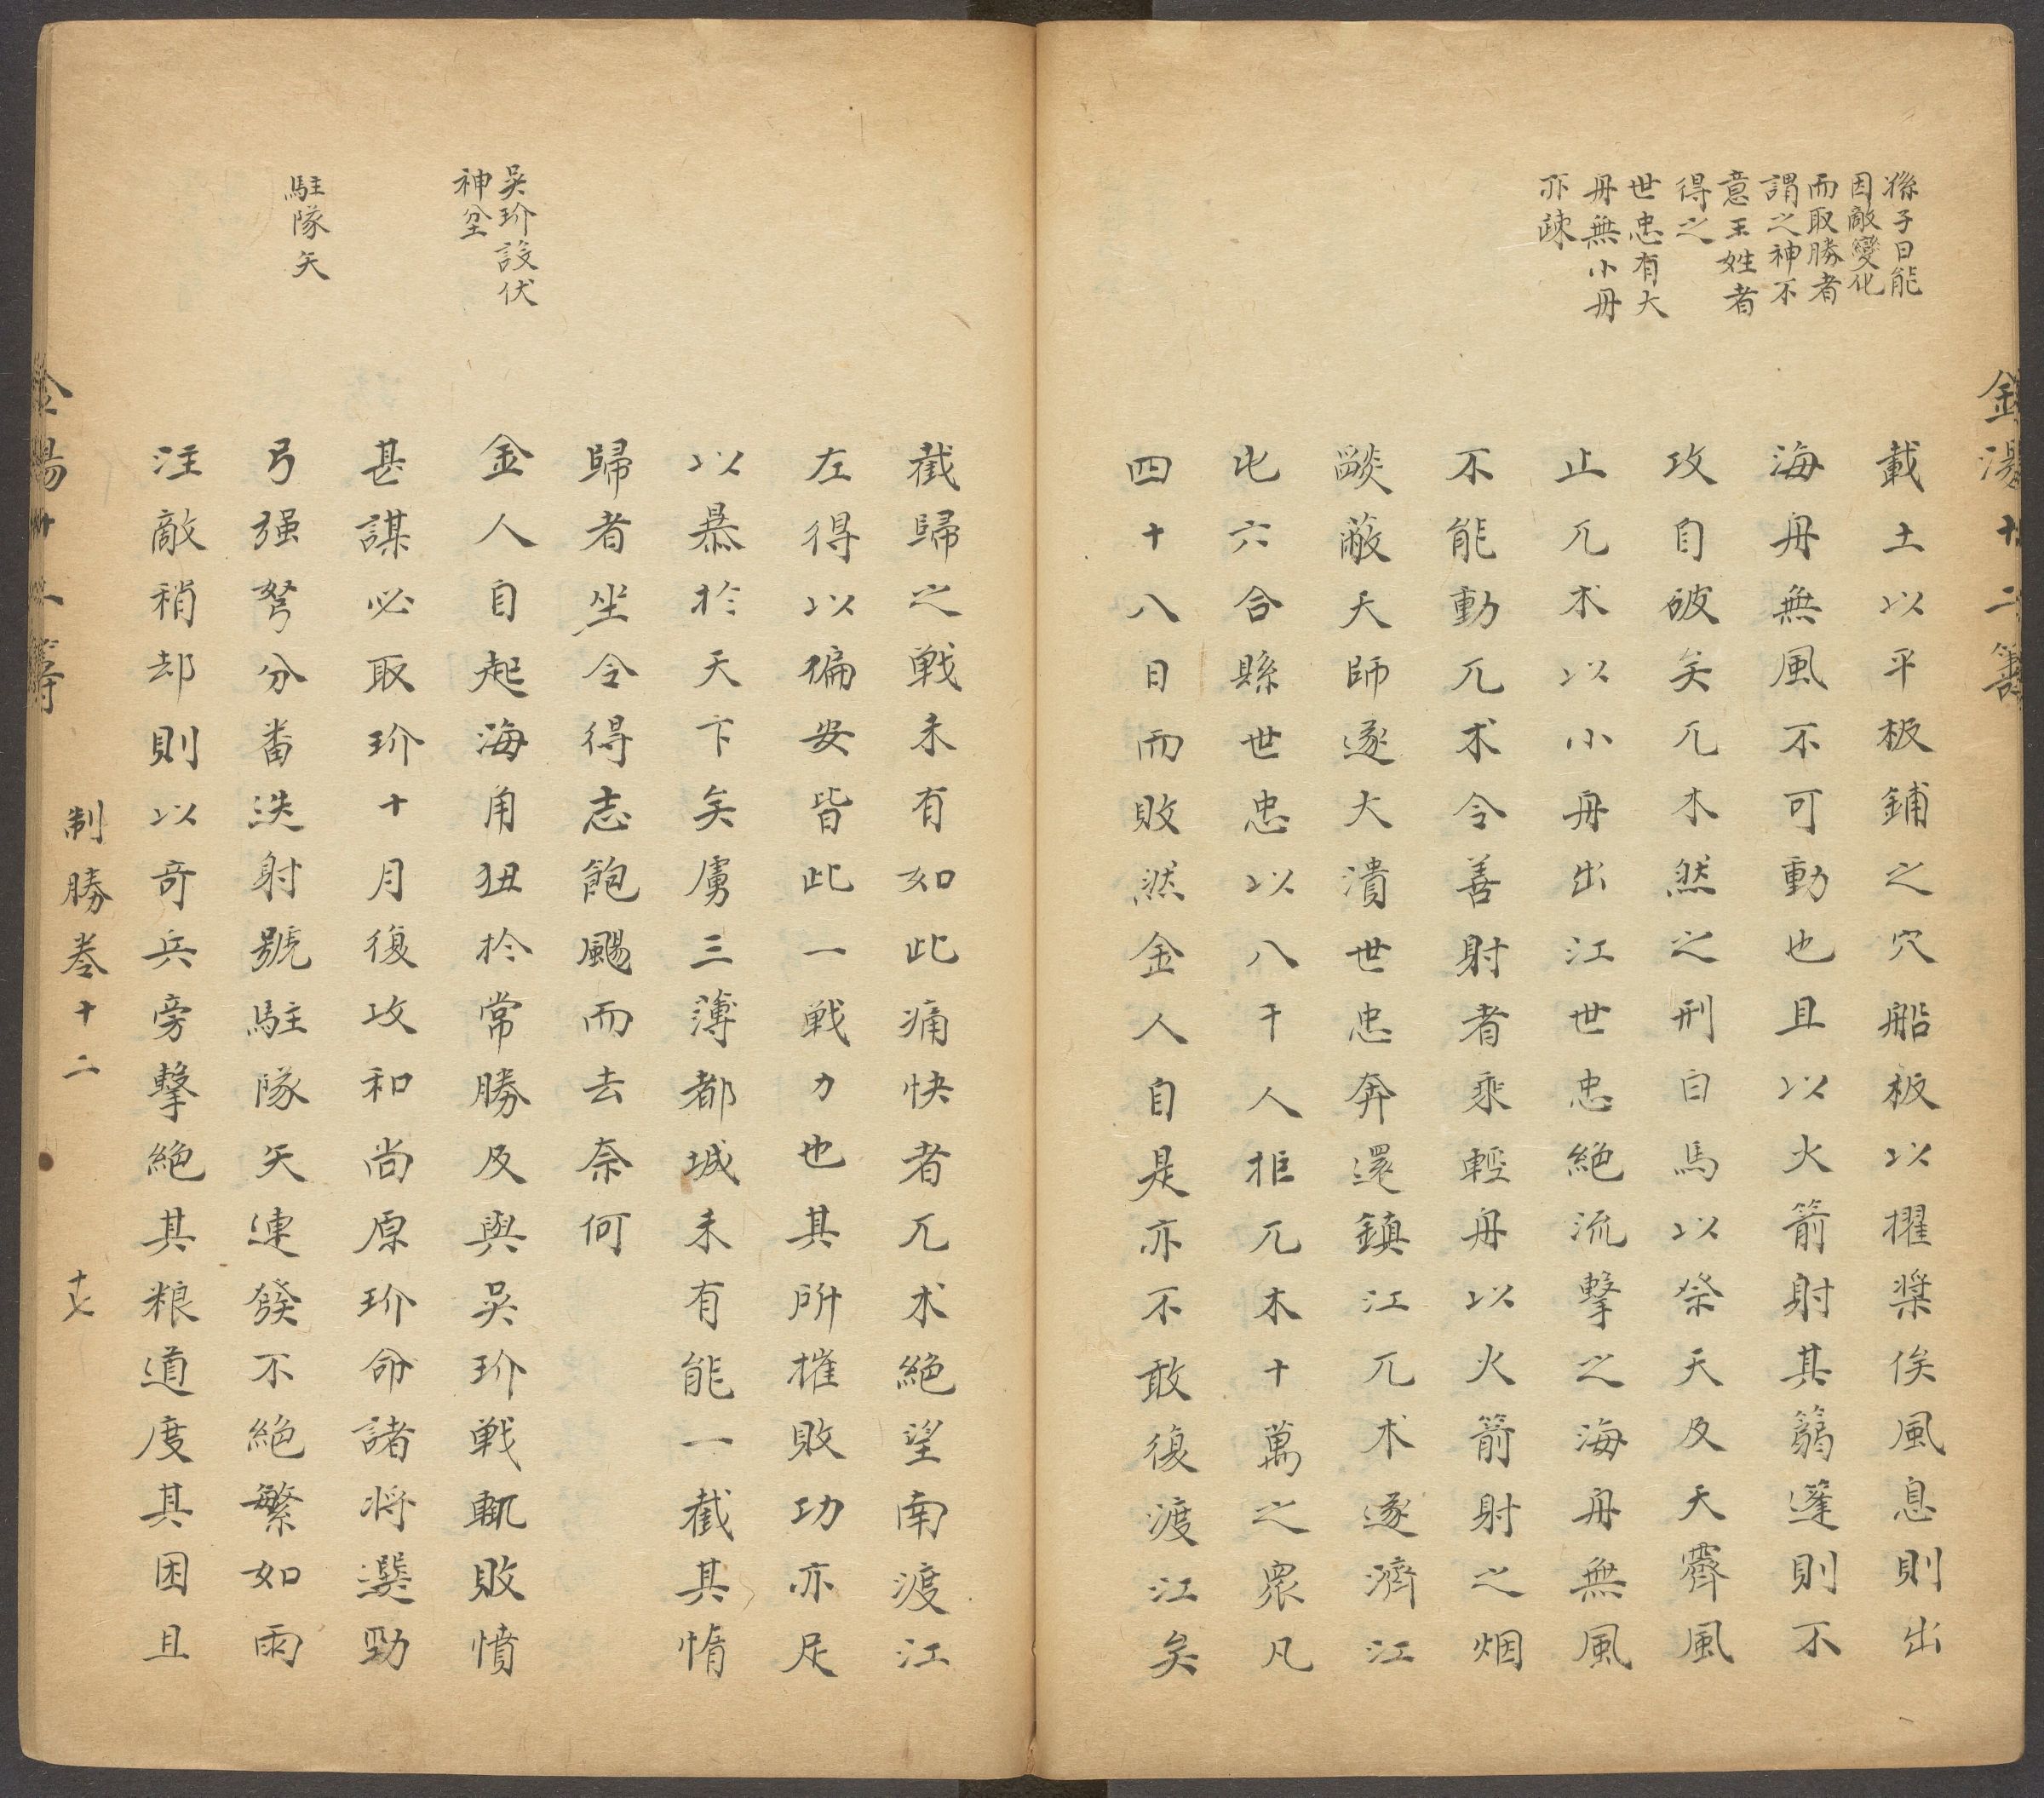 金湯十二籌
孫子曰能
因敵變化
而取勝者
謂之神不
意王姓者
得之
世忠有大
舟無小舟
亦疎
載土以平板鋪之穴船板以擢槳俟風息則出
海舟無風不可動也且以火箭射其篛篷則不
攻自破矣兀朮然之刑白馬以祭天及天霽風
止兀朮以小舟出江世忠絕流擊之海舟無風
不能動兀朮令善射者乘輕舟以火箭射之烟
燄蔽天師遂大潰世忠奔還鎮江兀朮遂濟江
屯六合縣世忠以八千人拒兀朮十萬之眾凡
四十八日而敗然金人自是亦不敢復渡江矣
截歸之戰未有如此痛快者兀朮絕望南渡江
左得以偏安皆此一戰力也其所摧敗功亦足
以暴於天下矣虜三薄都城未有能一截其惰
歸者坐令得志飽颺而去奈何
吳玠設伏
神坌
金人自起海角狃於常勝及與吳玠戰輒敗憤
甚謀必取玠十月復攻和尚原玠命諸將選勁
駐隊矢
弓强弩分番迭射號駐隊矢連發不絕繁如雨
注敵稍却則以奇兵旁擊絕其粮道度其困且
金湯十二籌
制勝卷十二
十七